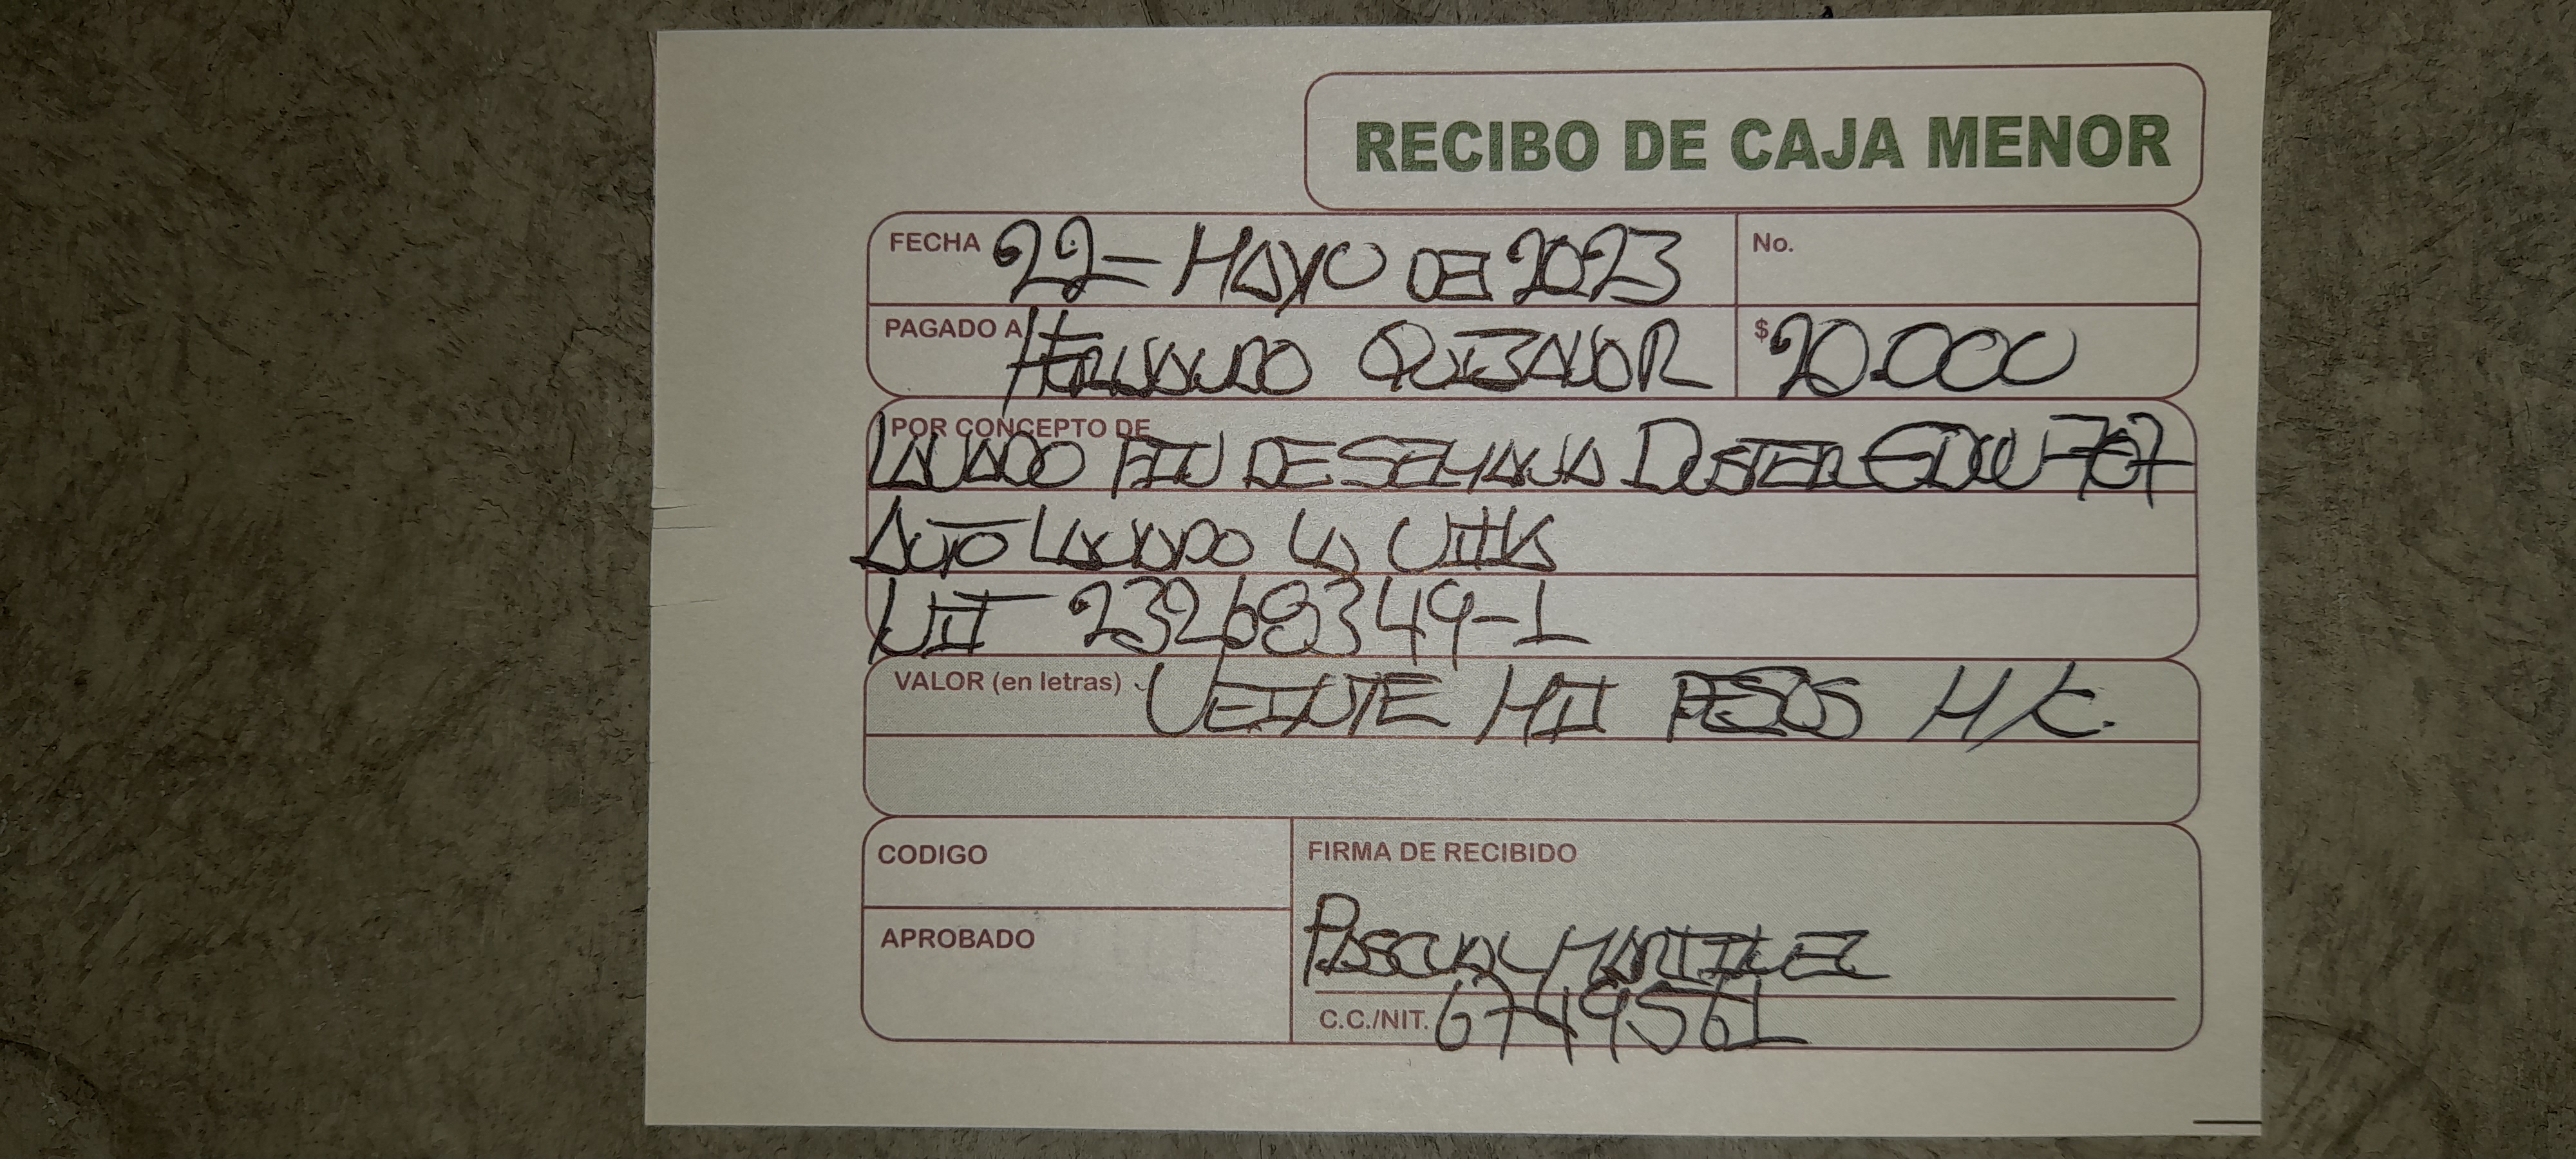 RECIBO DE CAJA MENOR
FECHA 22 - MAYO DE 2023 No.
PAGADO A QUIJANO R $ 20.000
POR CONCEPTO DE
LAVADO FIN DE SEMANA DUSTER 707
AUTO LAVADO LA
NIT 23268349-1
VALOR (en letras) VEINTE MIL PESOS M/C.
CODIGO FIRMA DE RECIBIDO
APROBADO
PASCUAL MARTINEZ
C.C./NIT. 6749561